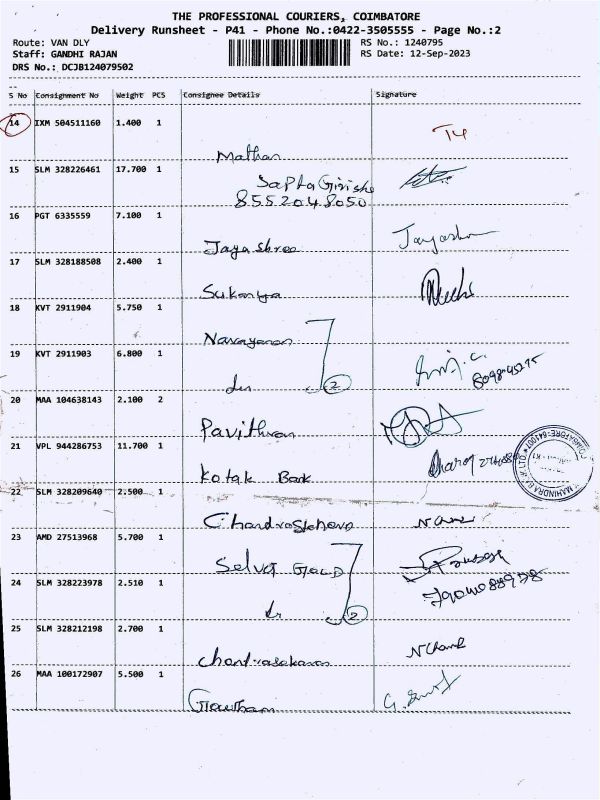 THE PROFESSIONAL COURIERS, COIMBATORE
Delivery Runsheet - P41 - Phone No.:0422-3505555 - Page No.:2
Route: VAN DLY RS No.: 1240795
Staff: GANDHI RAJAN RS Date: 12-Sep-2023
DRS No.: DCJB124079502
S No Consignment No Weight PCS Consignee Details Signature
14 IXM 504511160 1.400 1
Mathan
15 SLM 328226461 17.700 1
Sapta Girisha
8552048050
16 PGT 6335559 7.100 1
Jayashree
17 SLM 328188508 2.400 1
Sukanya
18 KVT 2911904 5.750 1
Narayanan
19 KVT 2911903 6.800 1
2
20 MAA 104638143 2.100 2
Pavithran
21 VPL 944286753 11.700 1
Kotak Bank
22 SLM 328209640 2.500 1
23 AMD 27513968 5.700 1
Selva Gold
24 SLM 328223978 2.510 1
2
25 SLM 328212198 2.700 1
Chandrasekaran
26 MAA 100172907 5.500 1
Gowtham